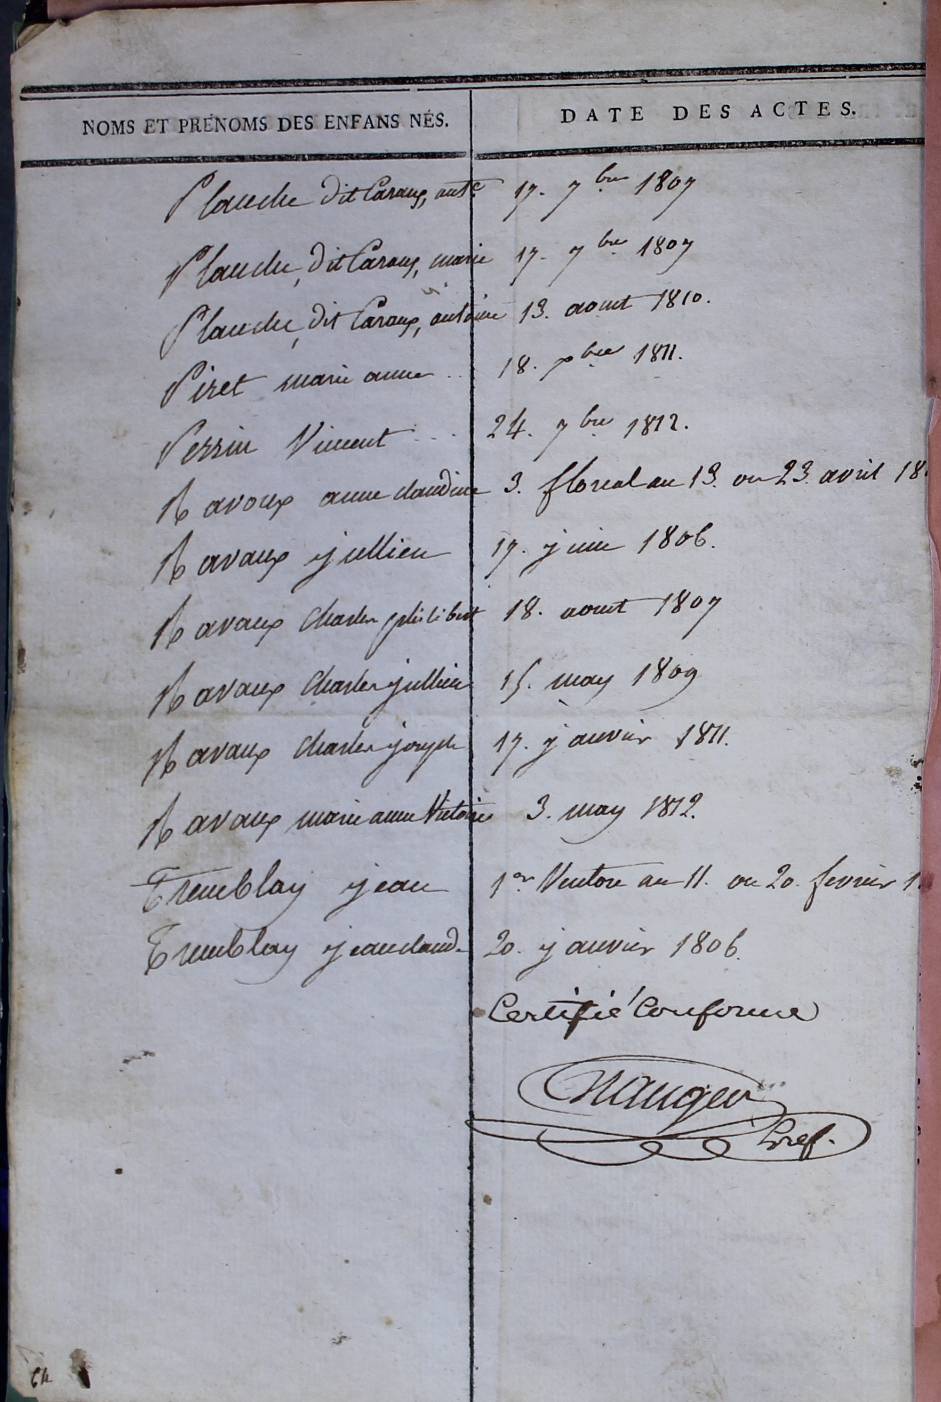 NOMS ET PRÉNOMS DES ENFANS NÉS. DATE DES ACTES.
Planche dit Caraux, ant.e 17. 7bre 1807
Planche, dit Caraux, marie 17. 7bre 1807
Planche, dit Caraux, antoine 13. aout 1810.
Piret marie anne .. 18. xbre 1811.
Perrin Vincent ... 24. 7bre 1812.
Ravoux anne claudine 3. floreal an 13. ou 23. avril 18
Ravaux jullien 17. juin 1806.
Ravaux Charles philibert 18. aout 1807
Ravaux Charles jullien 15. may 1809
Ravaux Charles joseph 17. janvier 1811.
Ravaux marie anne Victoire 3. may 1812.
Tremblay jean 1er Ventose an 11. ou 20. fevrier 1
Tremblay jean claude 20. janvier 1806.
Certifié Conforme